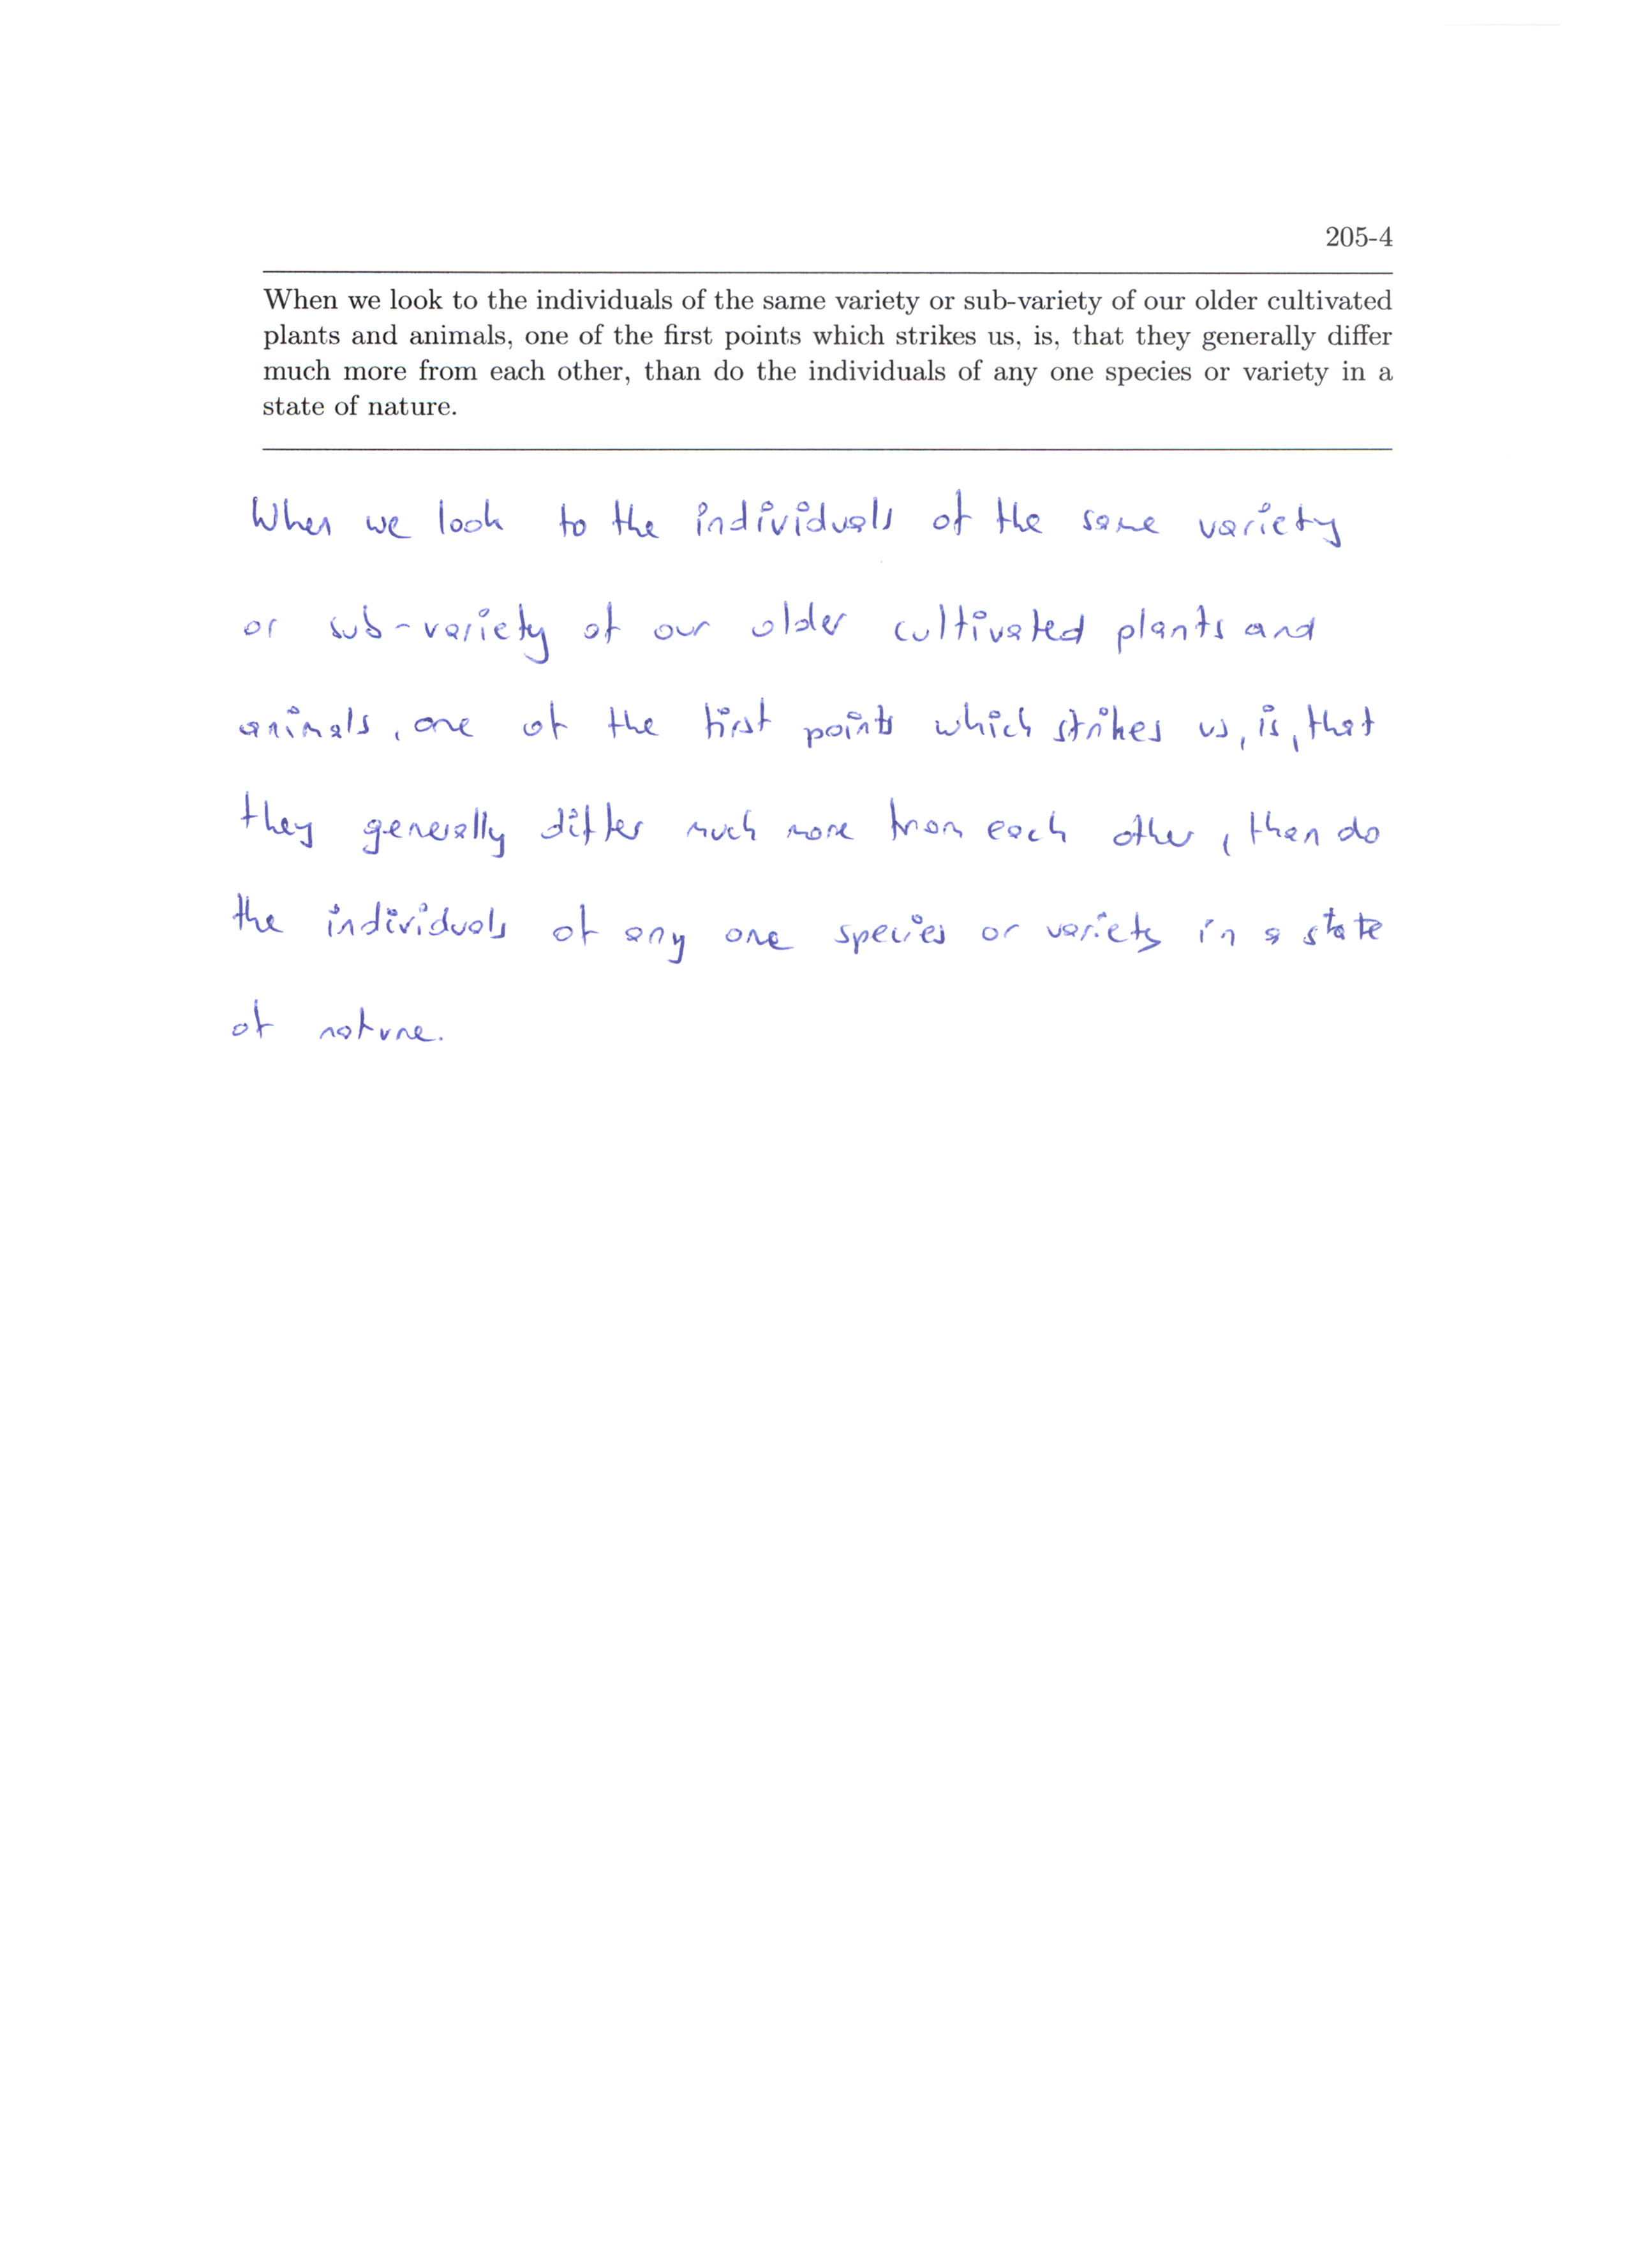 205-4
When we look to the individuals of the same variety or sub-variety of our older cultivated
plants and animals, one of the first points which strikes us, is, that they generally differ
much more from each other, than do the individuals of any one species or variety in a
state of nature.
When we look to the individuals of the same variety
or sub-variety of our older cultivated plants and
animals, one of the first points which strikes us, is, that
they generally differ much more from each other, than do
the individuals of any one species or variety in a state
of nature.